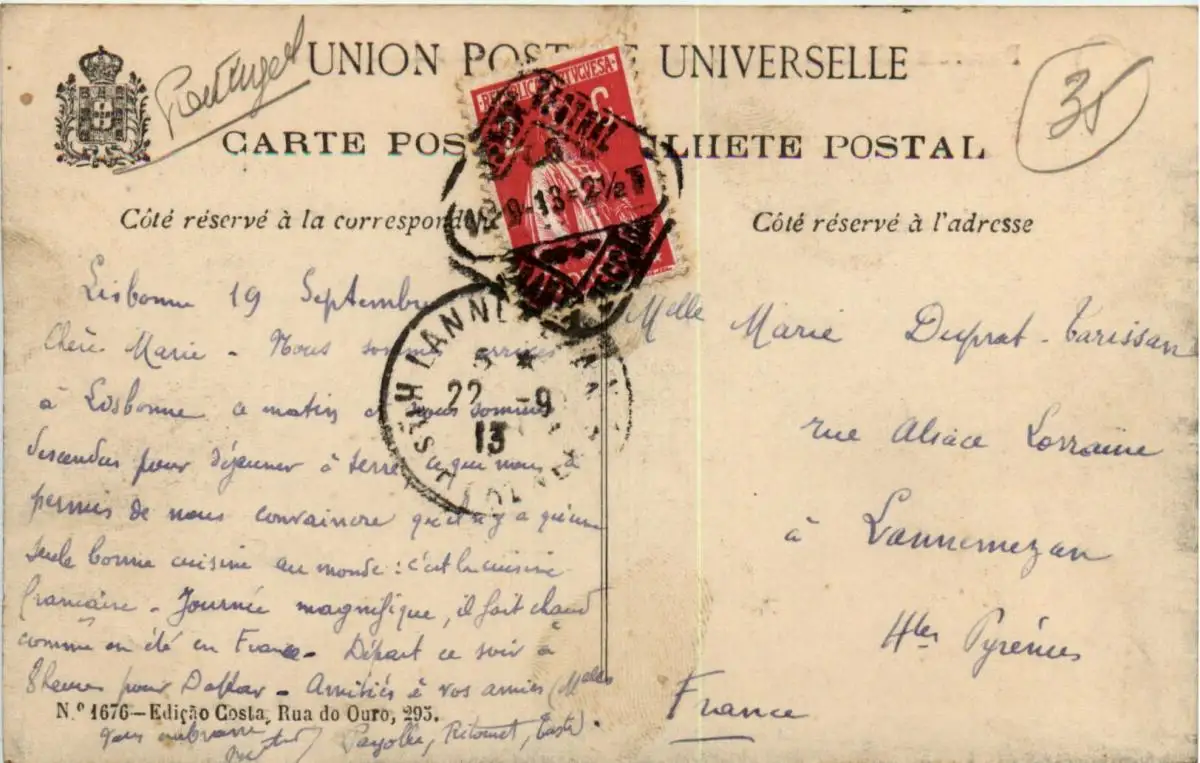 Portugal
UNION POST E UNIVERSELLE
35
CARTE POS ILHETE POSTAL
REPUBLICA PORTUGUESA
C
CENTRAL
9-13=2½T
Côté réservé à la corresponden
Côté réservé à l'adresse
Lisbonne 19 Septembre
Chère Marie - Nous sommes arrivés
à Lisbonne ce matin et nous sommes
descendus pour déjeuner à terre, ce qui nous a
permis de nous convaincre qu'il n'y a qu'une
seule bonne cuisine au monde : c'est la cuisine
française - Journée magnifique, il fait chaud
comme en été en France - Départ ce soir à
8 heures pour Dakar - Amitiés à vos amies (Melles
Payolle, Ritounet, Taste).
vous embrasse
LANNEMEZAN
5 *
22 -9
13
HTES PYRENEES
Melle Marie Duprat-Tarissan
rue Alsace Lorraine
à Lannemezan
Htes Pyrénées
France
N.º 1676—Edição Costa, Rua do Ouro, 295.